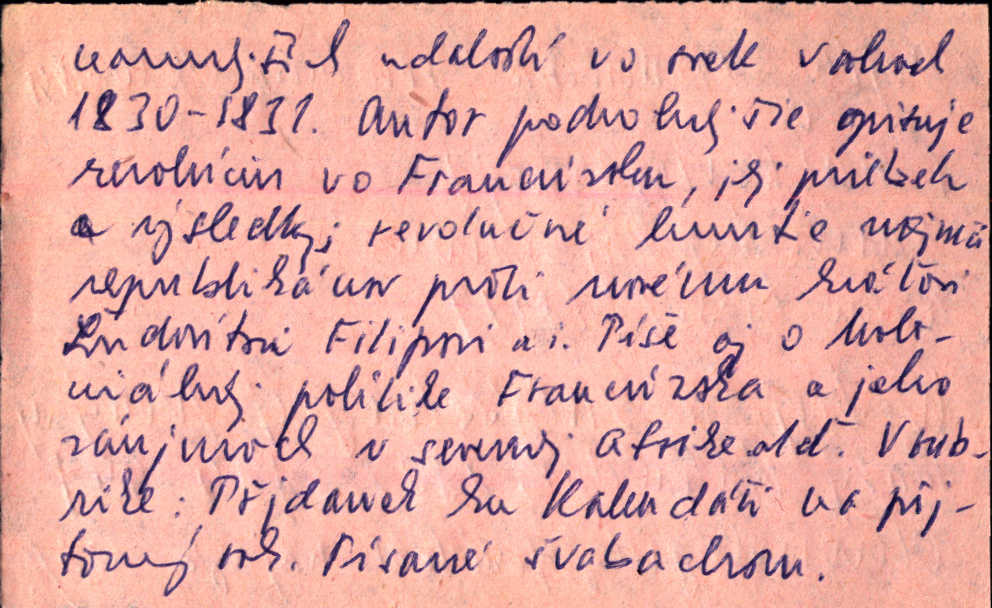 udalostí vo svete v rokoch
1830-1831. Autor podrobnejšie opisuje
revolúciu vo Francúzsku, jej priebeh
a výsledky; revolučné hnutie najmä
republikánov proti novému kráľovi
Ľudovítovi Filipovi a i. Píše aj o kolo-
niálnej politike Francúzska a jeho
záujmoch v severnej Afrike atď. V rub-
rike: Přjdawek ku Kalendáři na přj-
tomný rok. Písané švabachom.